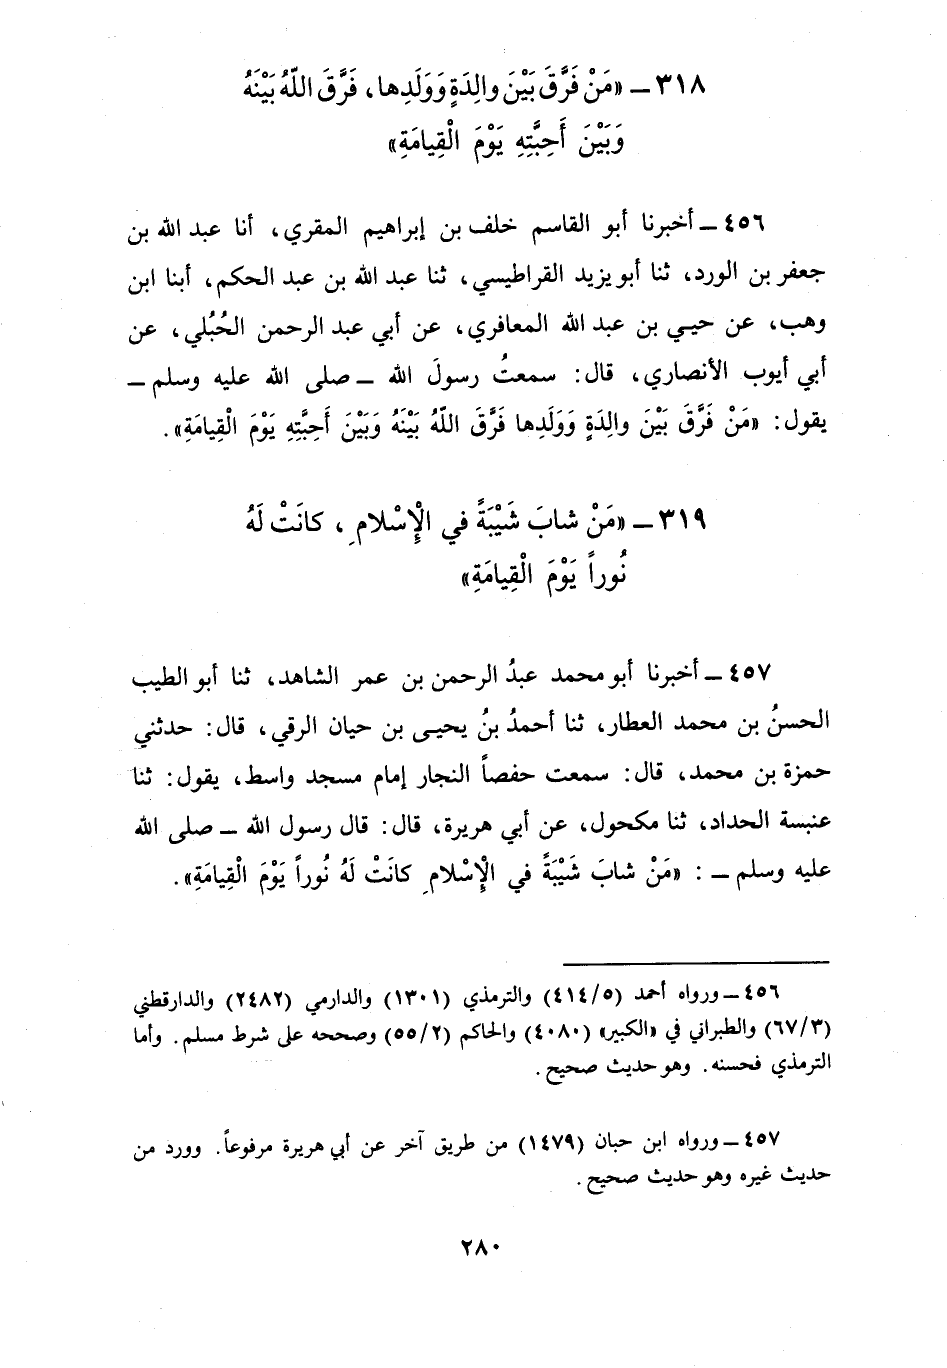 ٣١٨ ـ «مَنْ فَرَّقَ بَيْنَ والِدَةٍ وَوَلَدِها، فَرَّقَ اللّهُ بَيْنَهُ
وَبَيْنَ أَحِبَّتِهِ يَوْمَ الْقِيامَةِ»
٤٥٦ ـ أخبرنا أبو القاسم خلف بن إبراهيم المقري، أنا عبد الله بن
جعفر بن الورد، ثنا أبو يزيد القراطيسي، ثنا عبد الله بن عبد الحكم، أبنا ابن
وهب، عن حيـي بن عبد الله المعافري، عن أبي عبد الرحمن الحُبُلي، عن
أبي أيوب الأنصاري، قال: سمعتُ رسولَ الله ـ صلى الله عليه وسلم ـ
يقول: «مَنْ فَرَّقَ بَيْنَ والِدَةٍ وَوَلَدِها فَرَّقَ اللّهُ بَيْنَهُ وَبَيْنَ أَحِبَّتِهِ يَوْمَ الْقِيامَةِ».
٣١٩ ـ «مَنْ شابَ شَيْبَةً في الْإِسْلامِ، كانَتْ لَهُ
نُوراً يَوْمَ الْقِيامَةِ»
٤٥٧ ـ أخبرنا أبو محمد عبدُ الرحمن بن عمر الشاهد، ثنا أبو الطيب
الحسنُ بن محمد العطار، ثنا أحمدُ بنُ يحيـى بن حيان الرقي، قال: حدثني
حمزة بن محمد، قال: سمعت حفصاً النجار إمام مسجد واسط، يقول: ثنا
عنبسة الحداد، ثنا مكحول، عن أبي هريرة، قال: قال رسول الله ـ صلى الله
عليه وسلم ـ : «مَنْ شابَ شَيْبَةً في الْإِسْلامِ كانَتْ لَهُ نُوراً يَوْمَ الْقِيامَةِ».
٤٥٦ ـ ورواه أحمد (٤١٤/٥) والترمذي (١٣٠١) والدارمي (٢٤٨٢) والدارقطني
(٦٧/٣) والطبراني في «الكبير» (٤٠٨٠) والحاكم (٥٥/٢) وصححه على شرط مسلم. وأما
الترمذي فحسنه. وهو حديث صحيح.
٤٥٧ ـ ورواه ابن حبان (١٤٧٩) من طريق آخر عن أبي هريرة مرفوعاً. وورد من
حديث غيره وهو حديث صحيح.
٢٨٠